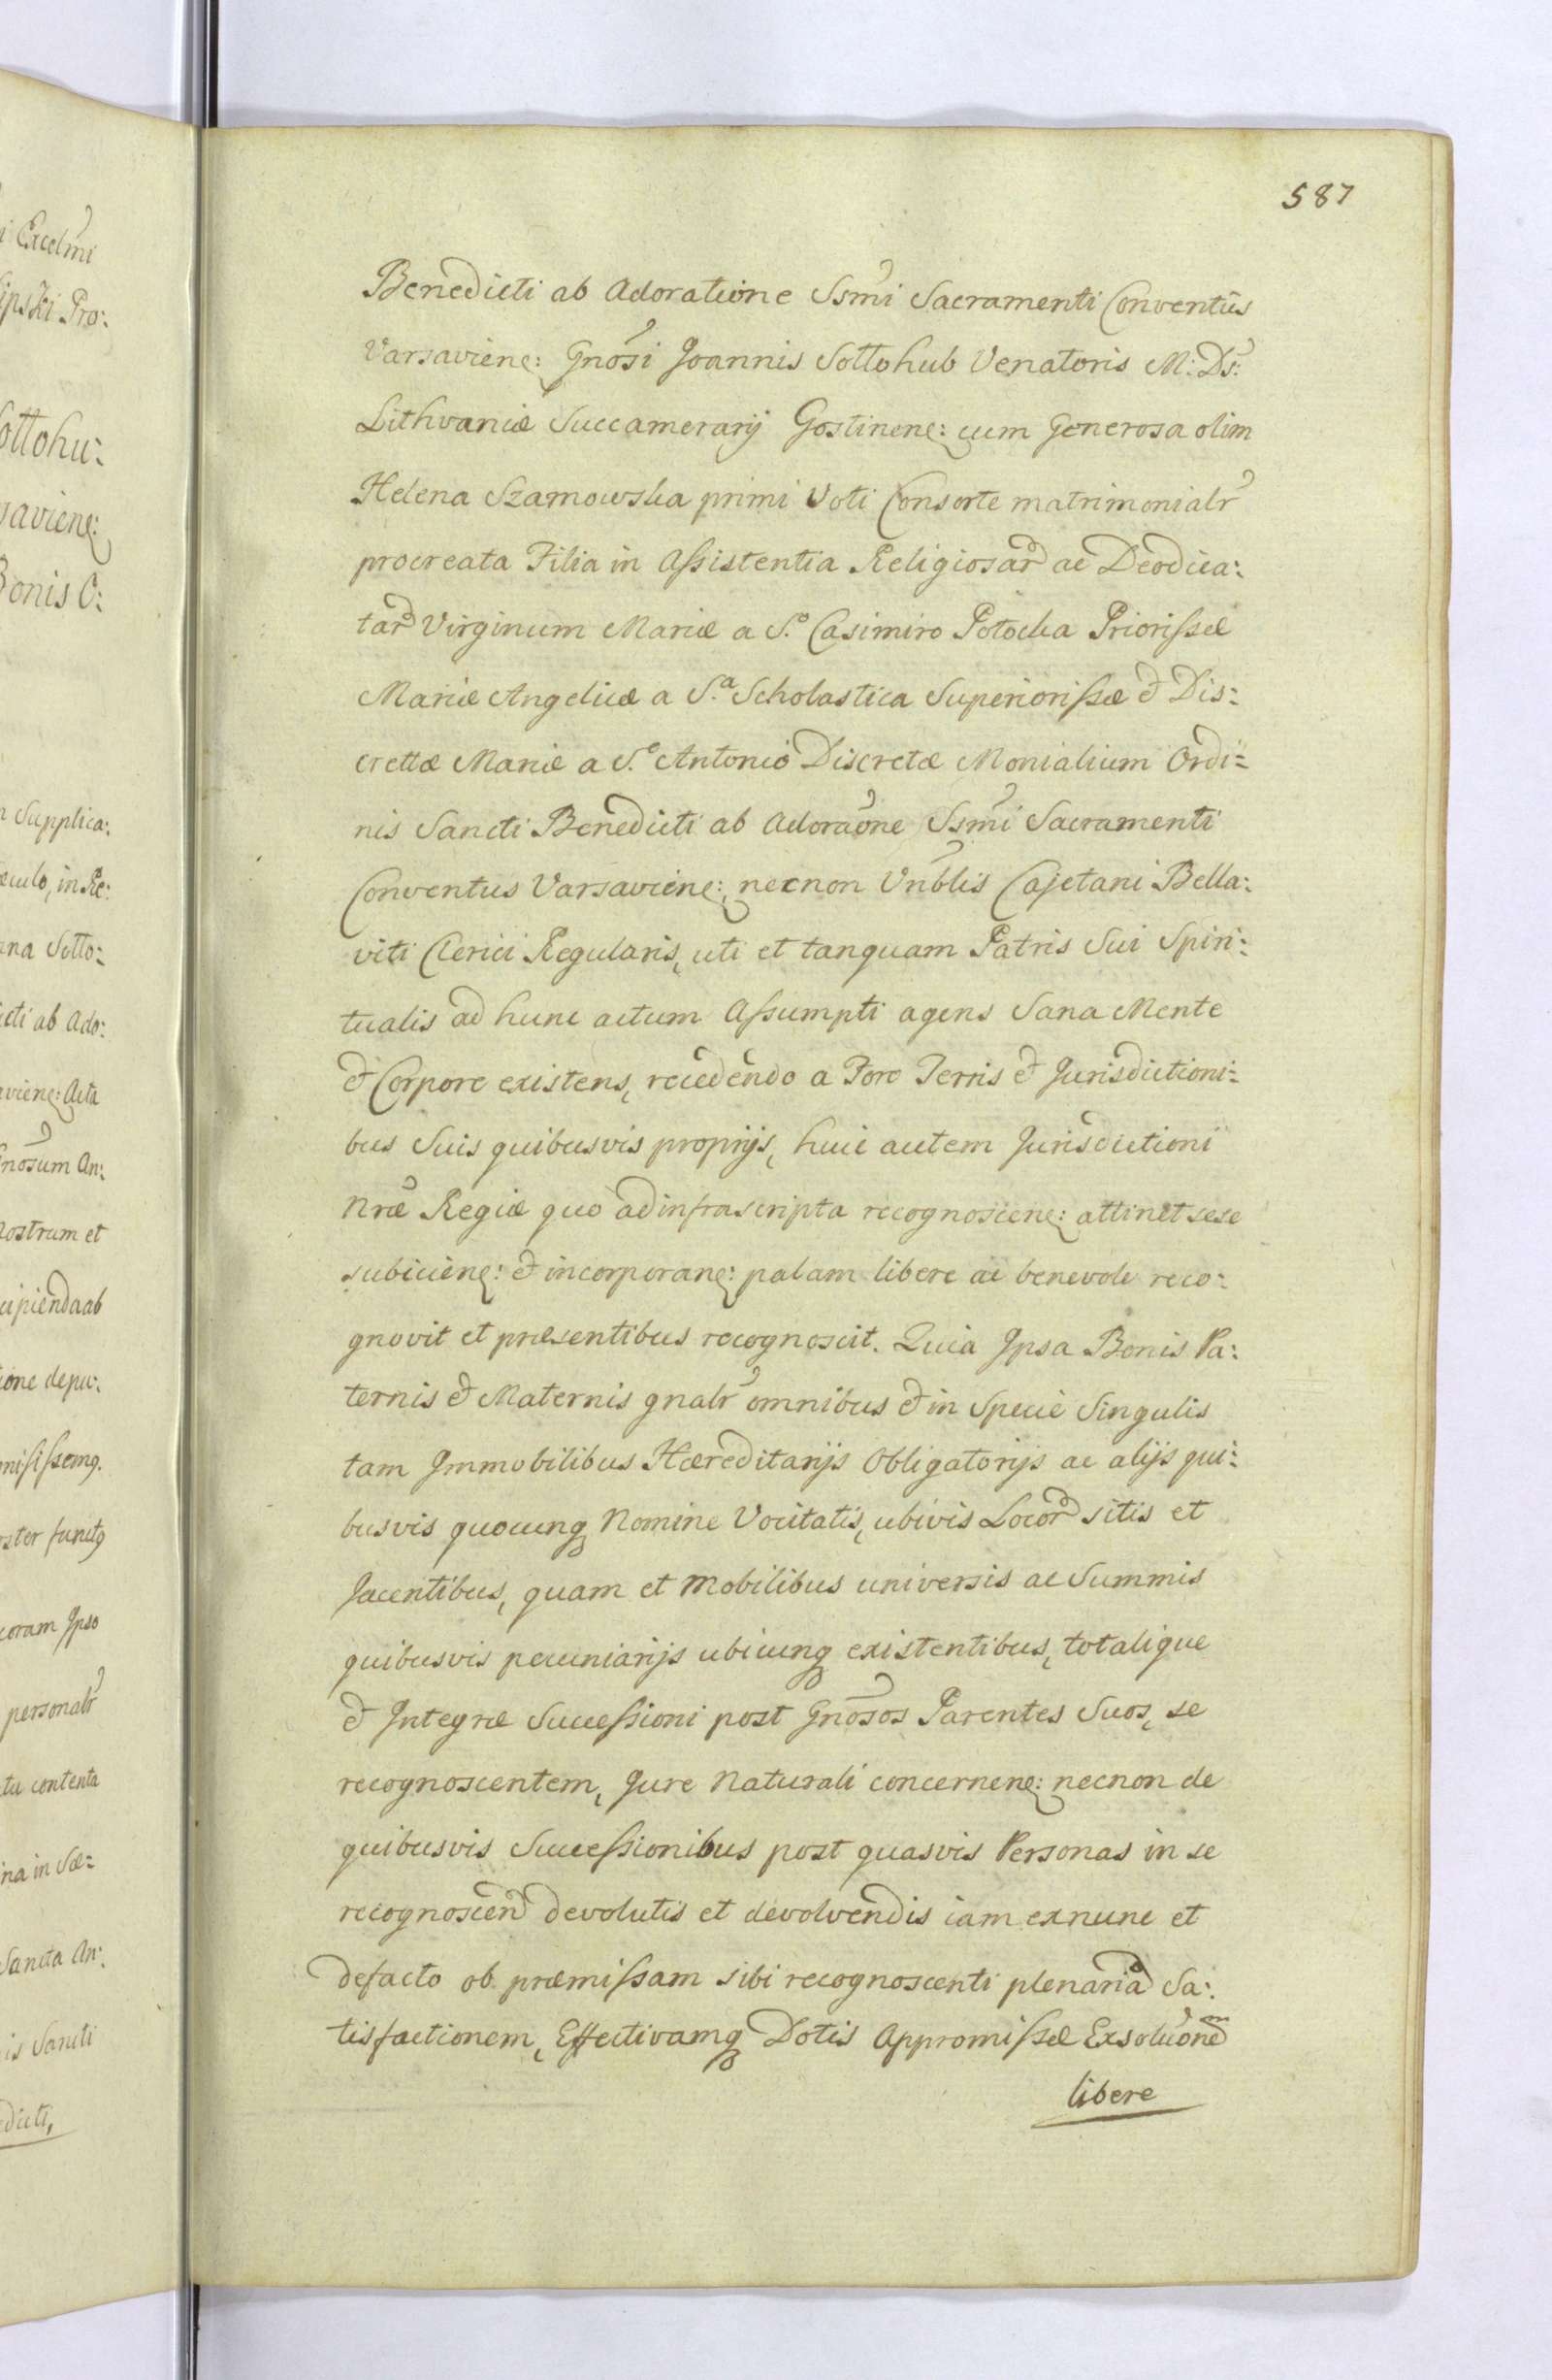 587
Benedicti ab Adoratione Ssmi Sacramenti Conventûs
Varsaviens: Gnosi Joannis Sottohub Venatoris M: Ds:
Lithvaniæ Succamerarij Gostinens: cum Generosa olim
Helena Szamowska primi Voti Consorte matrimonialr
procreata Filia in Assistentia Religiosar ac Deodica:
tar Virginum Mariæ a S.º Casimiro Potocka Priorissæ
Mariæ Angelicæ a S.ª Scholastica Superiorissæ & Dis:
crettæ Mariæ a S.º Antonio Discretæ Monialium Ordi=
nis Sancti Benedicti ab Adoraone Ssmi Sacramenti
Conventus Varsaviens: necnon Vnblis Cajetani Bella:
viti Clerici Regularis, uti et tanquam Patris Sui Spiri:
tualis ad hunc actum Assumpti agens Sana Mente
& Corpore existens, recedendo a Foro Terris & Jurisdictioni=
bus Suis quibusvis proprijs, huic autem Jurisdictioni
Nræ Regiæ quo ad infrascripta recognoscens: attinet sese
subiiciens: & incorporans: palam libere ac benevole reco:
gnovit et præsentibus recognoscit. Quia Ipsa Bonis Pa:
ternis & Maternis gnalr omnibus & in Specie Singulis
tam Immobilibus Hæreditarijs Obligatorijs ac alijs qui:
busvis quocunq Nomine Vocitatis, ubivis Locor sitis et
Jacentibus, quam et Mobilibus universis ac Summis
quibusvis pecuniarijs ubicunq existentibus, totalique
& Integræ Successioni post Gnosos Parentes Suos, se
recognoscentem, Jure Naturali concernens: necnon de
quibusvis Successionibus post quasvis Personas in se
recognoscen devolutis et devolvendis iam exnunc et
defacto ob præmissam sibi recognoscenti plenaria Sa:
tisfactionem, Effectivamq Dotis Appromissæ Exsoluonem
libere